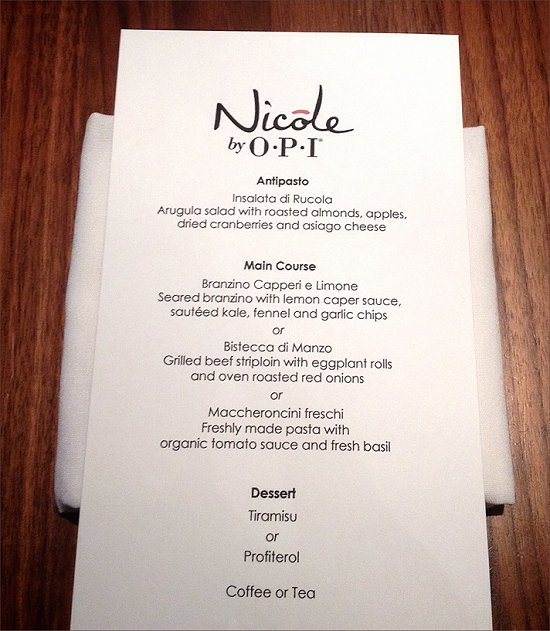 Nicole
by O·P·I®
Antipasto
Insalata di Rucola
Arugula salad with roasted almonds, apples,
dried cranberries and asiago cheese
Main Course
Branzino Capperi e Limone
Seared branzino with lemon caper sauce,
sautéed kale, fennel and garlic chips
or
Bistecca di Manzo
Grilled beef striploin with eggplant rolls
and oven roasted red onions
or
Maccheroncini freschi
Freshly made pasta with
organic tomato sauce and fresh basil
Dessert
Tiramisu
or
Profiterol
Coffee or Tea